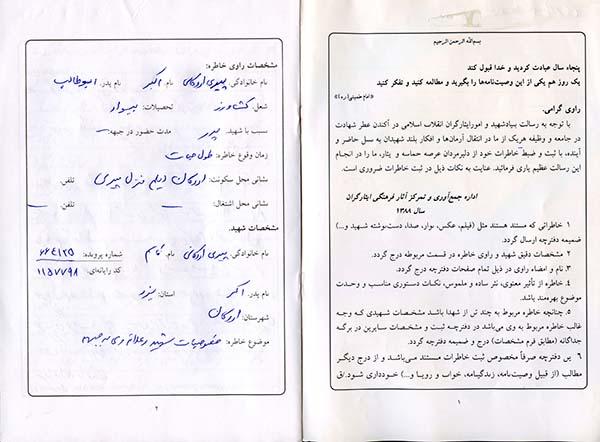 بسم‌الله الرحمن الرحیم
پنجاه سال عبادت کردید و خدا قبول کند
یک روز هم یکی از این وصیت‌نامه‌ها را بگیرید و مطالعه کنید و تفکر کنید
«امام خمینی(ره)»
راوی گرامی.
با توجه به رسالت بنیادشهید و امورایثارگران انقلاب اسلامی در آکندن عطر شهادت
در جامعه و وظیفه هریک از ما در انتقال آرمان‌ها و افکار بلند شهیدان به نسل حاضر و
آینده، با ثبت و ضبط خاطرات خود از دلیرمردان عرصه حماسه و یثار، ما را در انجام
این رسالت عظیم یاری فرمائید. عنایت به نکات ذیل در ثبت خاطرات ضروری است.
اداره جمع‌آوری و تمرکز آثار فرهنگی ایثارگران
سال ۱۳۸۸
۱ خاطراتی که مستند هستند مثل (فیلم، عکس، نوار، صدا، دست‌نوشته شهید و...)
ضمیمه دفترچه ارسال گردد.
۲ مشخصات دقیق شهید و راوی خاطره در قسمت مربوطه درج گردد.
۳ نام و امضاء راوی در ذیل تمام صفحات دفترچه درج گردد.
۴. خاطره از تأثیر معنوی، نثر ساده و ملموس، نکات دستوری مناسب و وحدت
موضوع بهره‌مند باشد.
۵. چنانچه خاطره مربوط به چند تن از شهدا باشد مشخصات شهیدی که وجه
غالب خاطره مربوط به وی می‌باشد در دفترچه ثبت و مشخصات سایرین در برگه
جداگانه (مطابق فرم مشخصات) درج و ضمیمه دفترچه گردد.
۶ ین دفترچه صرفاً مخصوص ثبت خاطرات مستند می‌باشد و از درج دیگر
مطالب (از قبیل وصیت‌نامه، زندگینامه، خواب و رویا و...) خودداری شود./ق
۱
مشخصات راوی خاطره:
نام خانوادگی: پیری اردکانی نام: اکبر نام پدر: ابوطالب
شغل: کشاورز تحصیلات: بیسواد
نسبت با شهید: پدر مدت حضور در جبهه: –
زمان وقوع خاطره: طول حیات
نشانی محل سکونت: اردکان منزل پیری تلفن:
نشانی محل اشتغال: تلفن:
مشخصات شهید:
نام خانوادگی: پیری اردکانی نام: قاسم شماره پرونده: ۶۶۴۱۲۵
کد رایانه‌ای: ۱۱۵۷۷۹۸
نام پدر: اکبر استان: یزد
شهرستان: اردکان
موضوع خاطره: خصوصیات شهید و علاقه وی به جبهه
۲